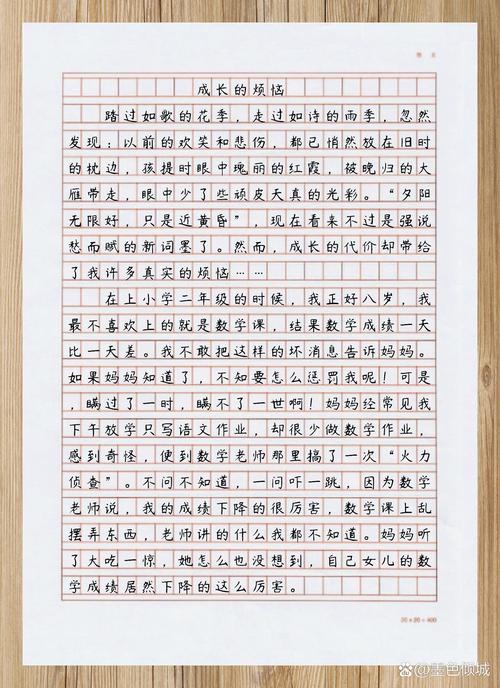 成长的烦恼
踏过如歌的花季，走过如诗的雨季，忽然
发现：以前的欢笑和悲伤，都已悄然放在旧时
的枕边，孩提时眼中瑰丽的红霞，被晚归的大
雁带走，眼中少了些顽皮天真的光彩。“夕阳
无限好，只是近黄昏”，现在看来不过是强说
愁而赋的新词墨了。然而，成长的代价却带给
了我许多真实的烦恼……
在上小学二年级的时候，我正好八岁，我
最不喜欢上的就是数学课，结果数学成绩一天
比一天差。我不敢把这样的坏消息告诉妈妈。
如果妈妈知道了，不知要怎么惩罚我呢！可是
，瞒过了一时，瞒不了一世啊！妈妈经常见我
下午放学只写语文作业，却很少做数学作业，
感到奇怪，便到数学老师那里搞了一次“火力
侦查”。不问不知道，一问吓一跳，因为数学
老师说，我的成绩下降的很厉害，数学课上乱
摆弄东西，老师讲的什么我都不知道。妈妈听
了大吃一惊，她怎么也没想到，自己女儿的数
学成绩居然下降的这么厉害。
20×20=400
@墨色倾城